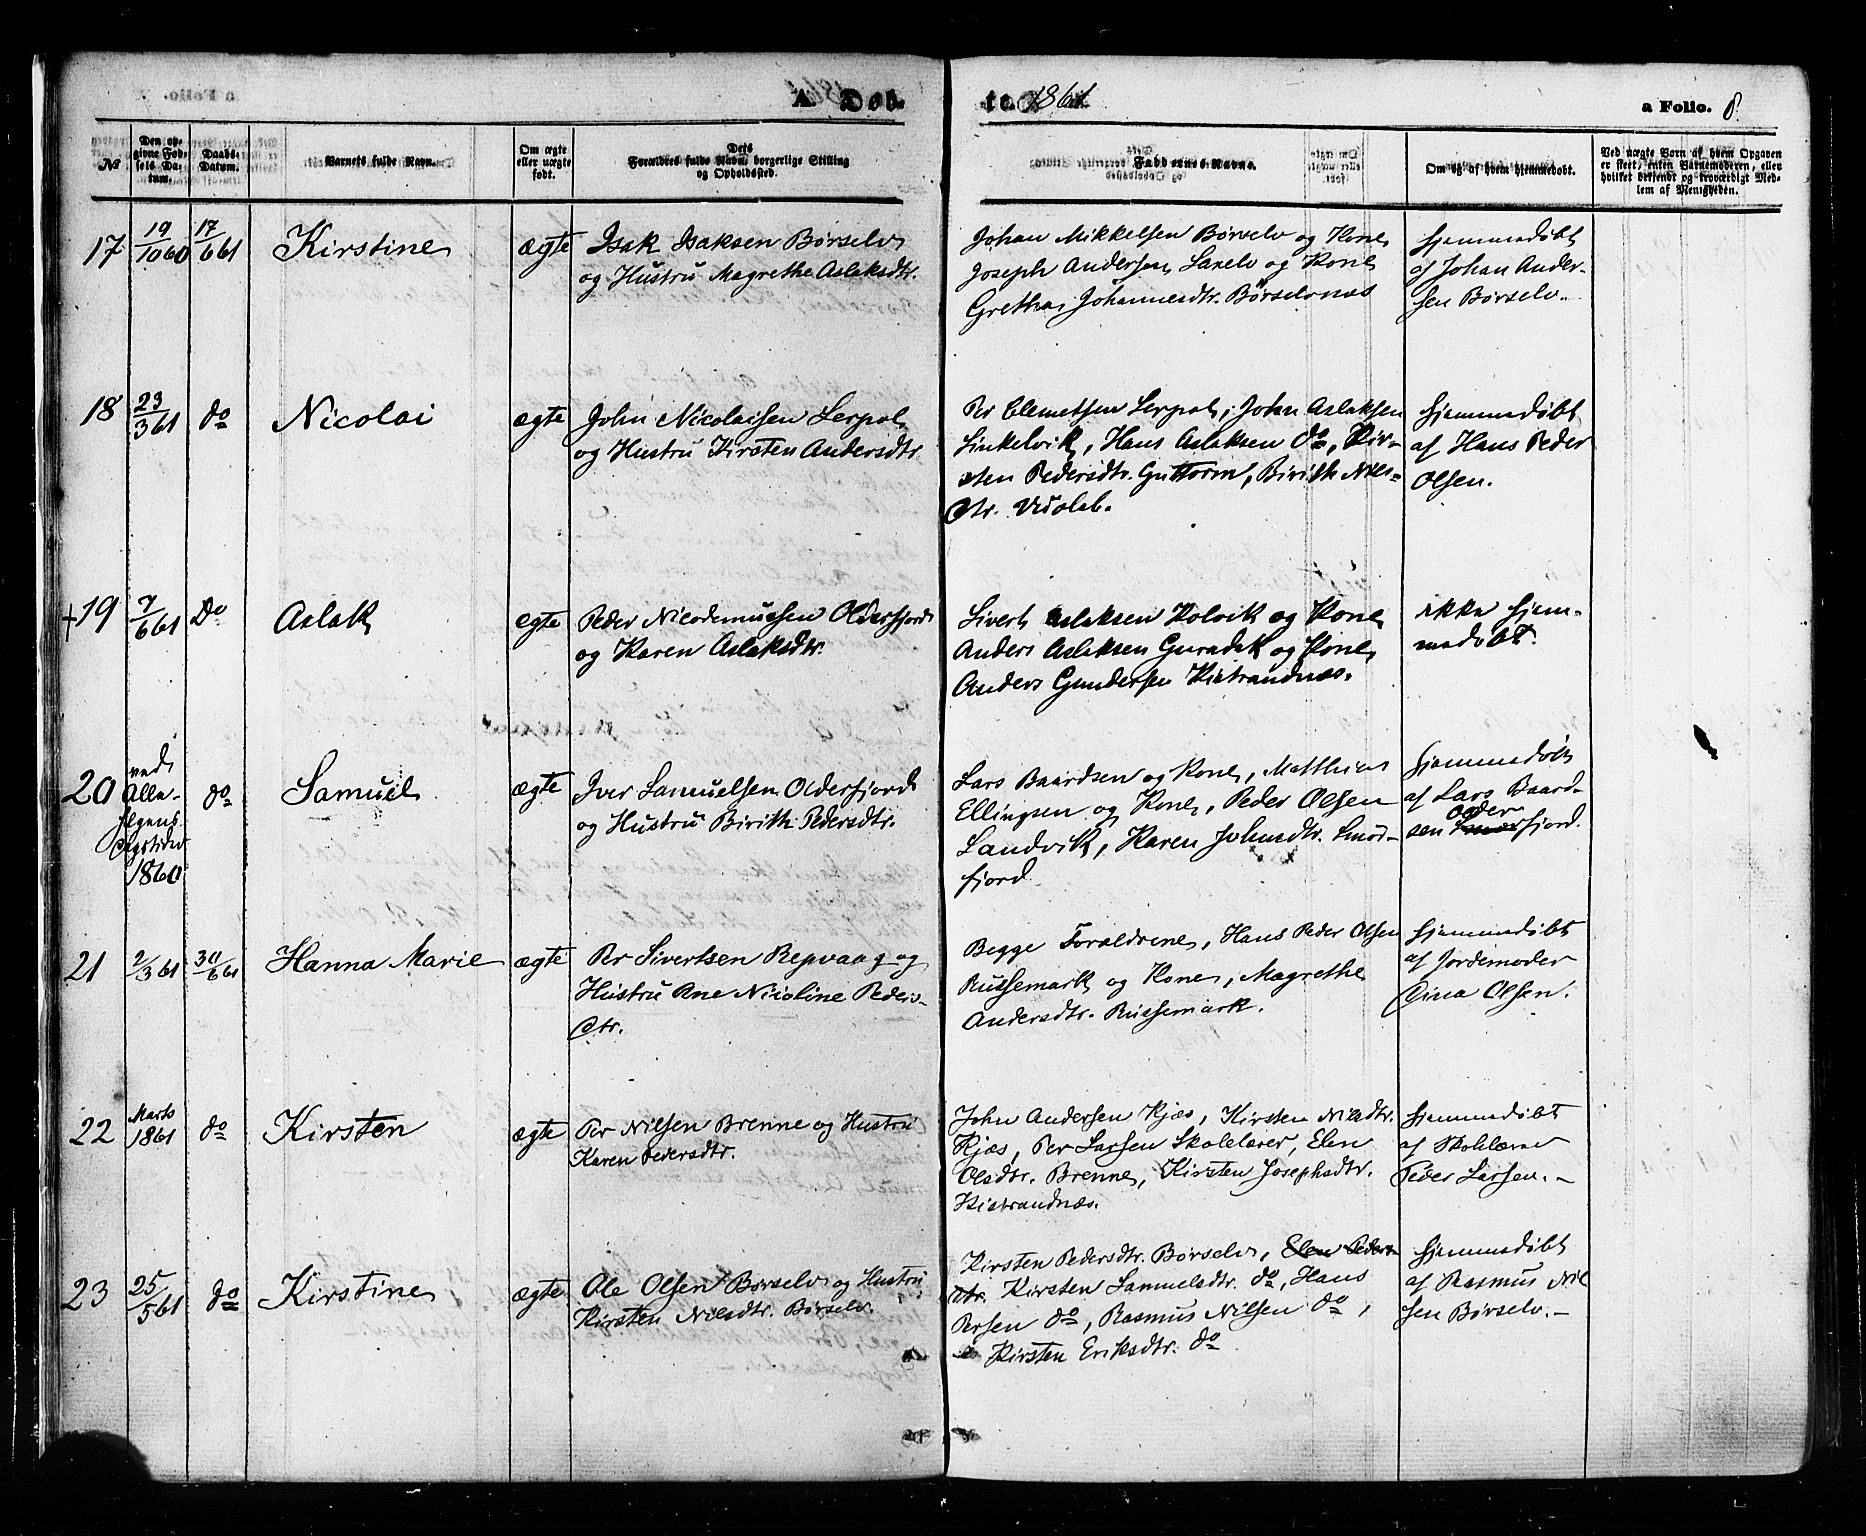 A. Døb-
te. 1861.
a Folio. 8.
No
Den op-
givne Fød-
sels Da-
tum.
Daabs-
Datum.
Barnets fulde Navn.
Om ægte
eller uægte
født.
Dets
Forældres fulde Navn, borgerlige Stilling
og Opholdssted.
Faddernes Navne.
Om og af hvem hjemmedøbt.
Ved uægte Børn af hvem Opgaven
er skeet, enten Barnemoderen, eller
hvilket bekjendt og troværdigt Med-
lem af Menigheden.
17
19/10 60
17/6 61
Kirstine
ægte
Isak Isaksen Børselv
og Hustru Magrethe Aslaksdtr.
Johan Mikkelsen Børselv og Kone,
Joseph Andersen Laxelv og Kone
Grethe Johannesdtr. Børselvnæs
hjemmedøbt
af Johan Ander-
sen Børselv.
18
23/3 61
do
Nicolai
ægte
John Nicolaisen Lerpol
og Hustru Kirsten Andersdtr.
Per Clemetsen Lerpol, John Aslaksen
Sinkelvik, Hans Aslaksen do, Kir-
sten Pedersdtr. Guttorm, Birith Niels-
dtr.
hjemmedøbt
af Hans Peder
Olsen.
+19
7/6 61
Do
Aslak
ægte
Peder Nicodemussen Olderfjord
og Karen Aslaksdtr.
Sivert Aslaksen Kolvik og Kone,
Anders Aslaksen og Kone,
Anders Gundersen Kistrandnæs.
ikke hjem-
medøbt.
20
ved
Alle-
helgens
dagstider
1860
do
Samuel
ægte
Iver Samuelsen Olderfjord
og Hustru Birith Pedersdtr.
Lars Baardsen og Kone, Matthias
Ellingsen og Kone, Peder Olsen
Sandvik, Karen Johnsdtr. Smør-
fjord
hjemmedøbt
af Lars Baard-
sen Olderfjord.
21
2/3 61
30/6 61
Hanna Marie
ægte
Per Sivertsen Repvaag og
Hustru Ane Nicoline Peders-
dtr.
Begge Forældrene, Hans Peder Olsen
Russemark og Kone, Magrethe
Andersdtr. Russemark.
hjemmedøbt
af Jordemoder
Dina Olsen.
22
Marts
1861
do
Kirsten
ægte
Per Nilsen Brenne og Hustru
Karen Pedersdtr.
John Andersen Kjæs, Kirsten Nilsdtr.
Kjæs, Per Larsen Skolelærer, Elen
Olsdtr. Brenne, Kirsten Josephsdtr.
Kistrandnæs.
hjemmedøbt
af Skolelærer
Peder Larsen.-
23
25/5 61
do
Kirstine
ægte
Ole Olsen Børselv og Hustru
Kirsten Nilsdtr. Børselv.
Kirsten Pedersdtr. Børselv, Elen Peders-
dtr. Kirsten Samuelsdtr. do, Hans
Persen do, Rasmus Nilsen do,
Kirsten Eriksdtr. do
hjemmedøbt
af Rasmus Nil-
sen Børselv.-